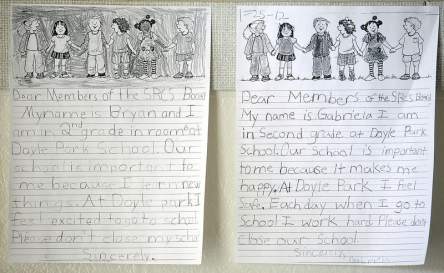 Dear Members of the SRCS Board
My name is Bryan and I
am in 2nd grade in room at
Doyle Park School. Our
school is important to
me because I learn new
things. At Doyle park I
feel excited to go to school
Please don't close my scho
Sincerely,
1-25-12
Dear Members of the SRCS Board
My name is Gabriela I am
in Second grade at Doyle Park
School. Our School is important
to me because It makes me
happy. At Doyle Park I feel
Safe. Each day when I go to
School I work hard Please don't
close ouxr School
Sincerely,